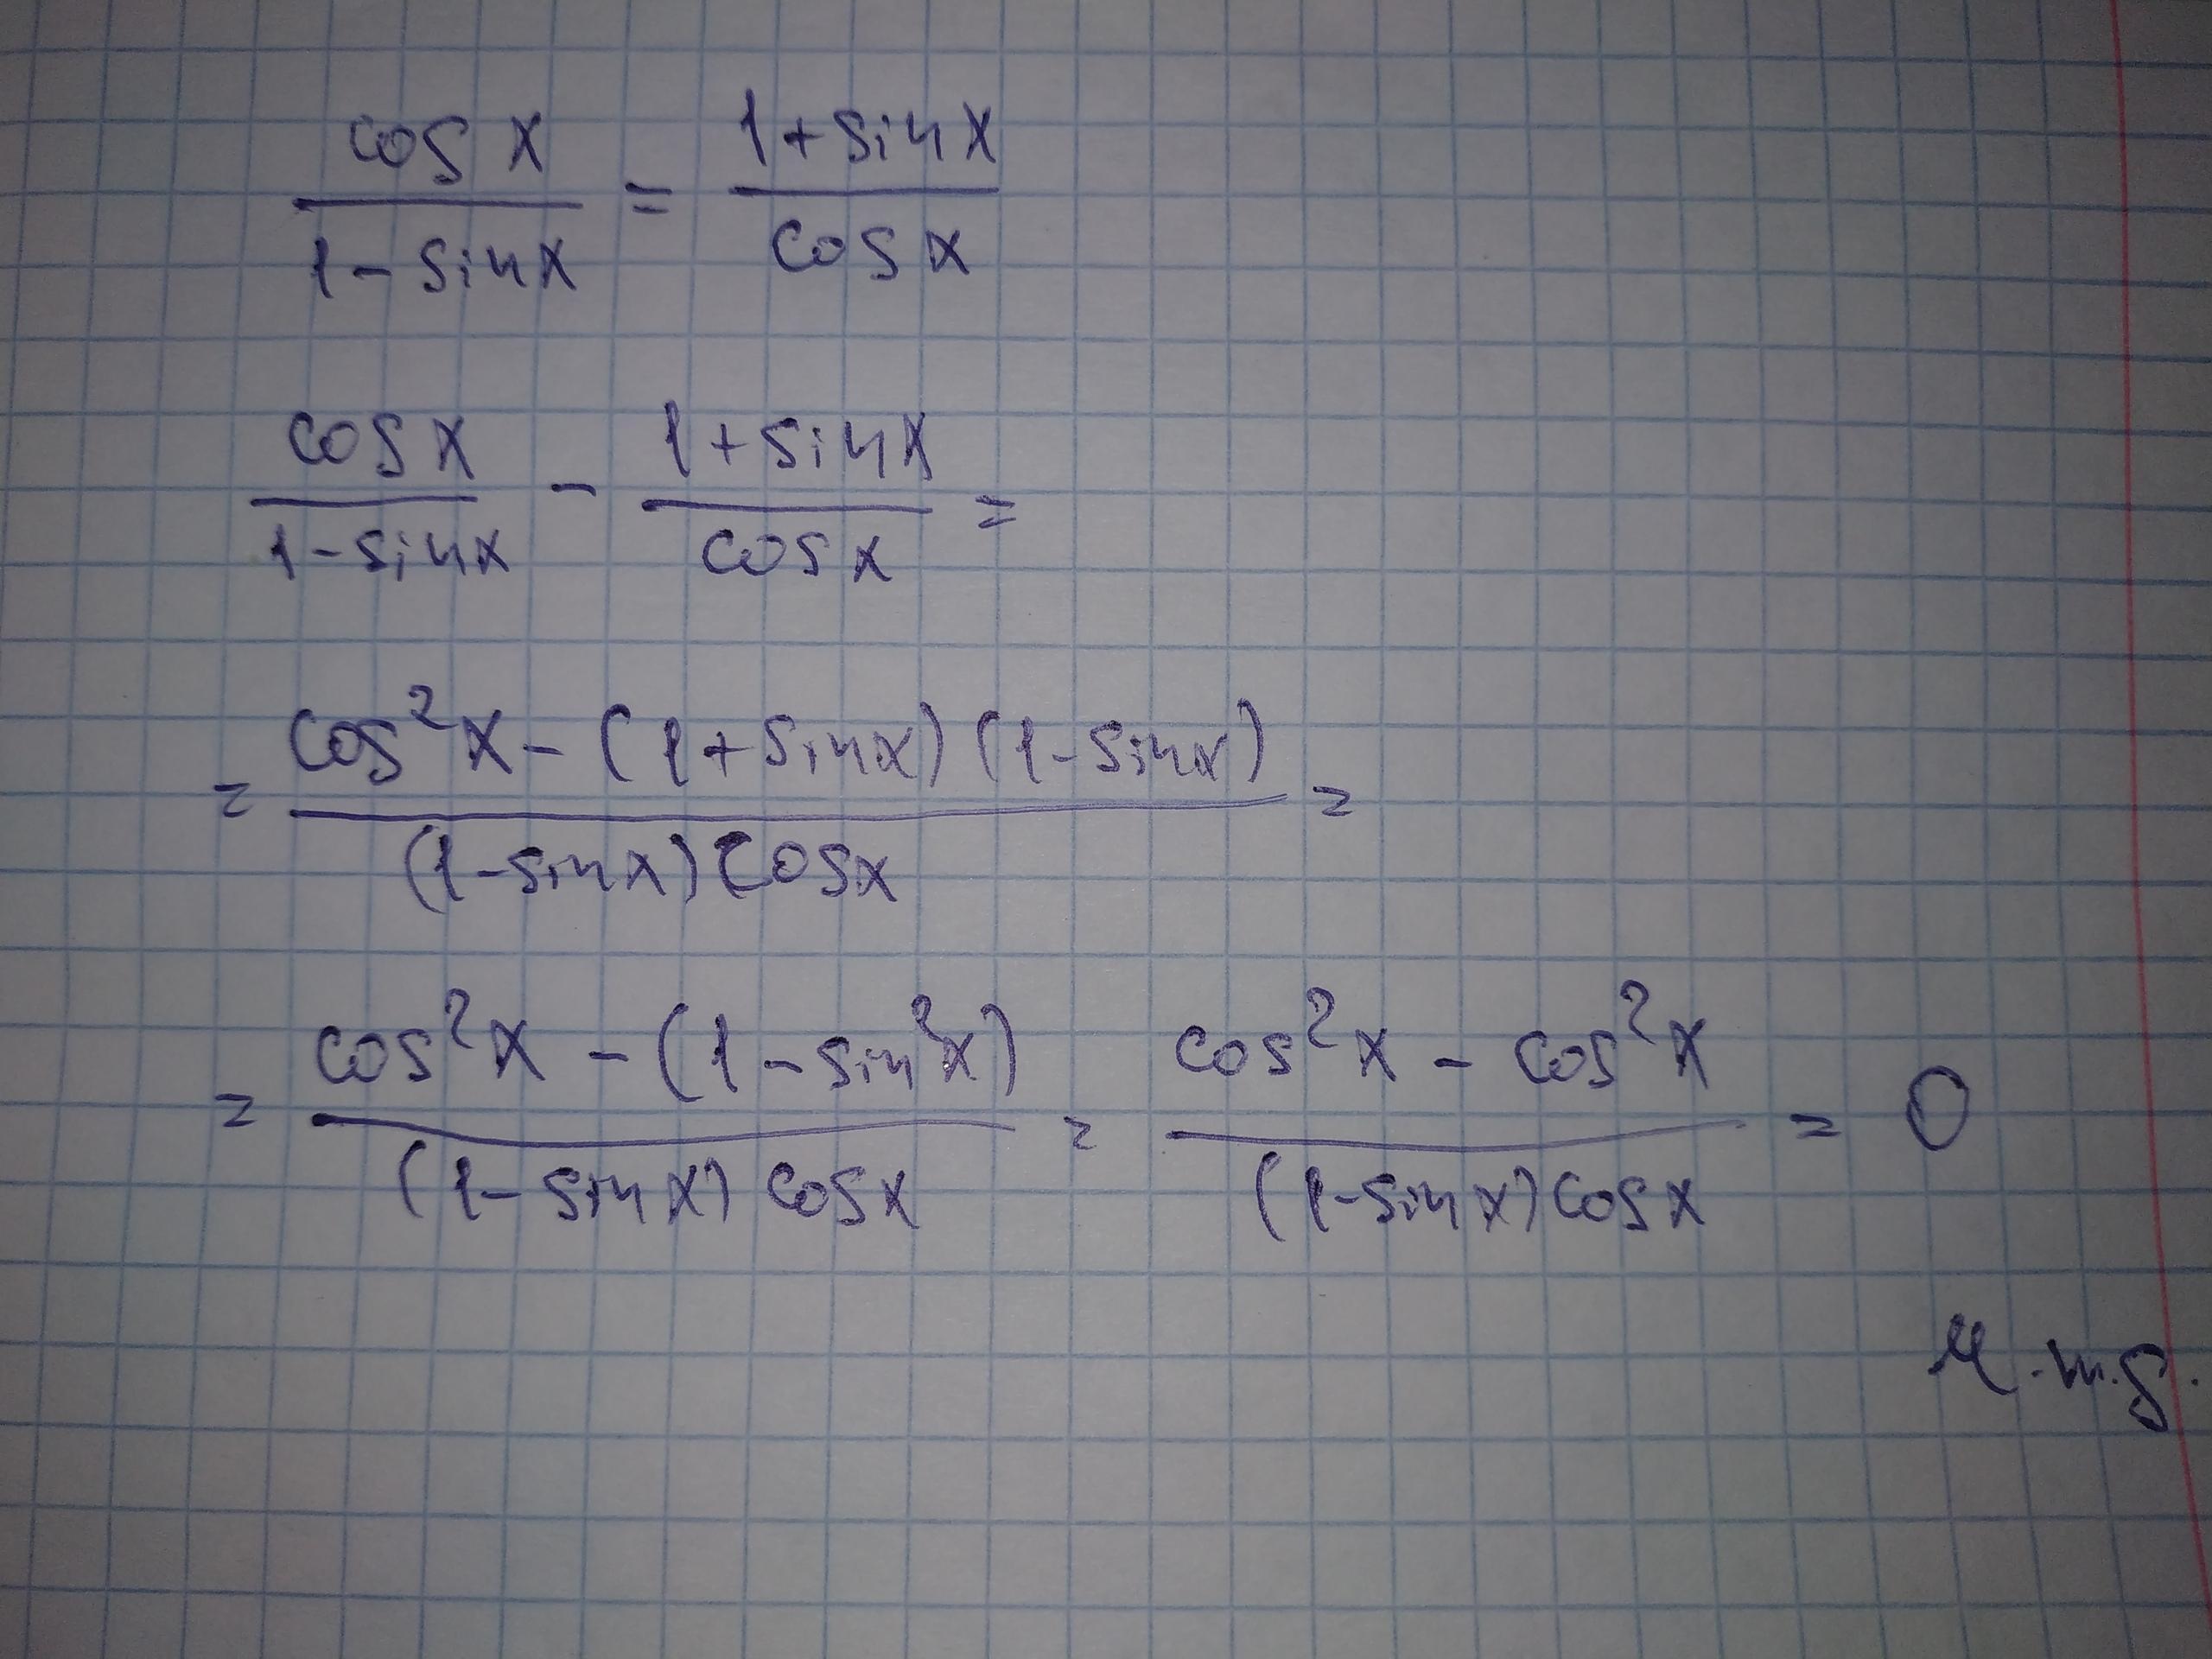 cos x / 1 - sin x = 1 + sin x / cos x
cos x / 1 - sin x - 1 + sin x / cos x =
= cos²x - (1 + sin x)(1 - sin x) / (1 - sin x) cos x =
= cos²x - (1 - sin²x) / (1 - sin x) cos x = cos²x - cos²x / (1 - sin x) cos x = 0
ч.т.д.